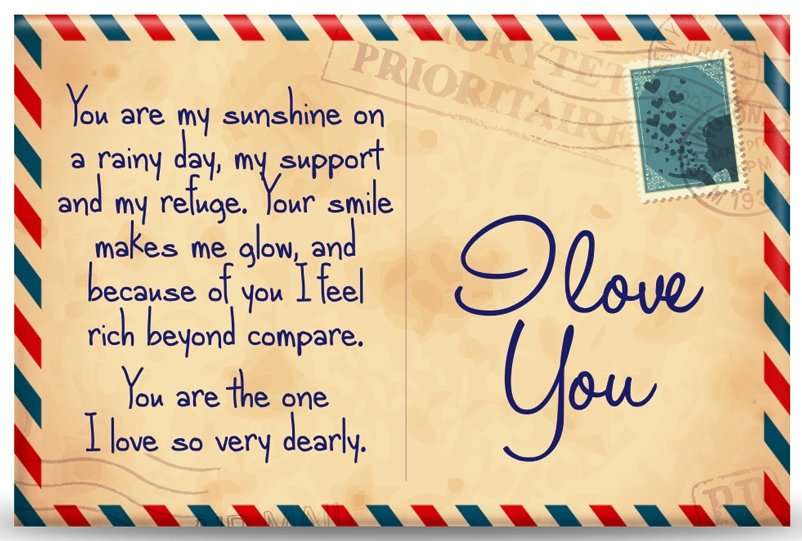 You are my sunshine on
a rainy day, my support
and my refuge. Your smile
makes me glow, and
because of you I feel
rich beyond compare.
You are the one
I love so very dearly.
PRIORITAIRE
I love
You